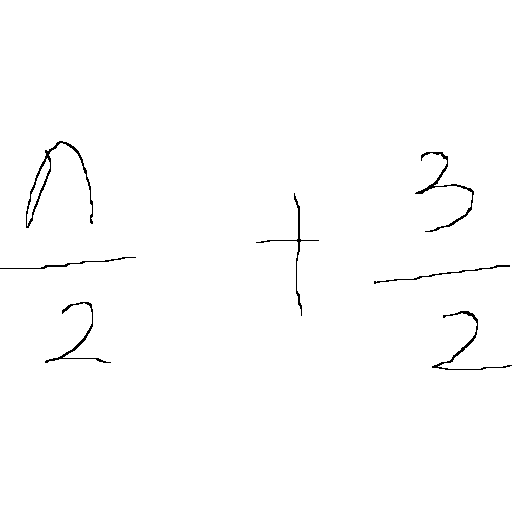 \frac{n}{2} + \frac{3}{2}